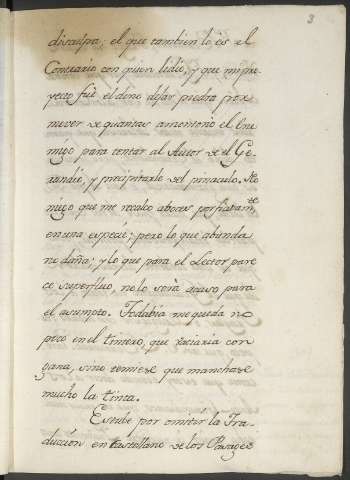 3
disculpa; el que tambien lo es el
Contrario con quien lidie, y que mi pro-
yecto fuè el dino dejar piedra por re-
mover de quantas amontonó el Ene
migo para tentar al Autor de el Ge-
rundio, y precipitarlo del pinaculo. No
niego que me recalco à veces porfiadam.te
en una especie; pero lo que abunda
no daña; y lo que para el Lector pare
ce superfluo, no lo serà acaso para
el asumpto. Todabia me queda no
poco en el tintero, que vaciaria con
gana, sino temiese que manchase
mucho la tinta.
Estube por omitir la Tra-
duccion en Castellano de los Pasages